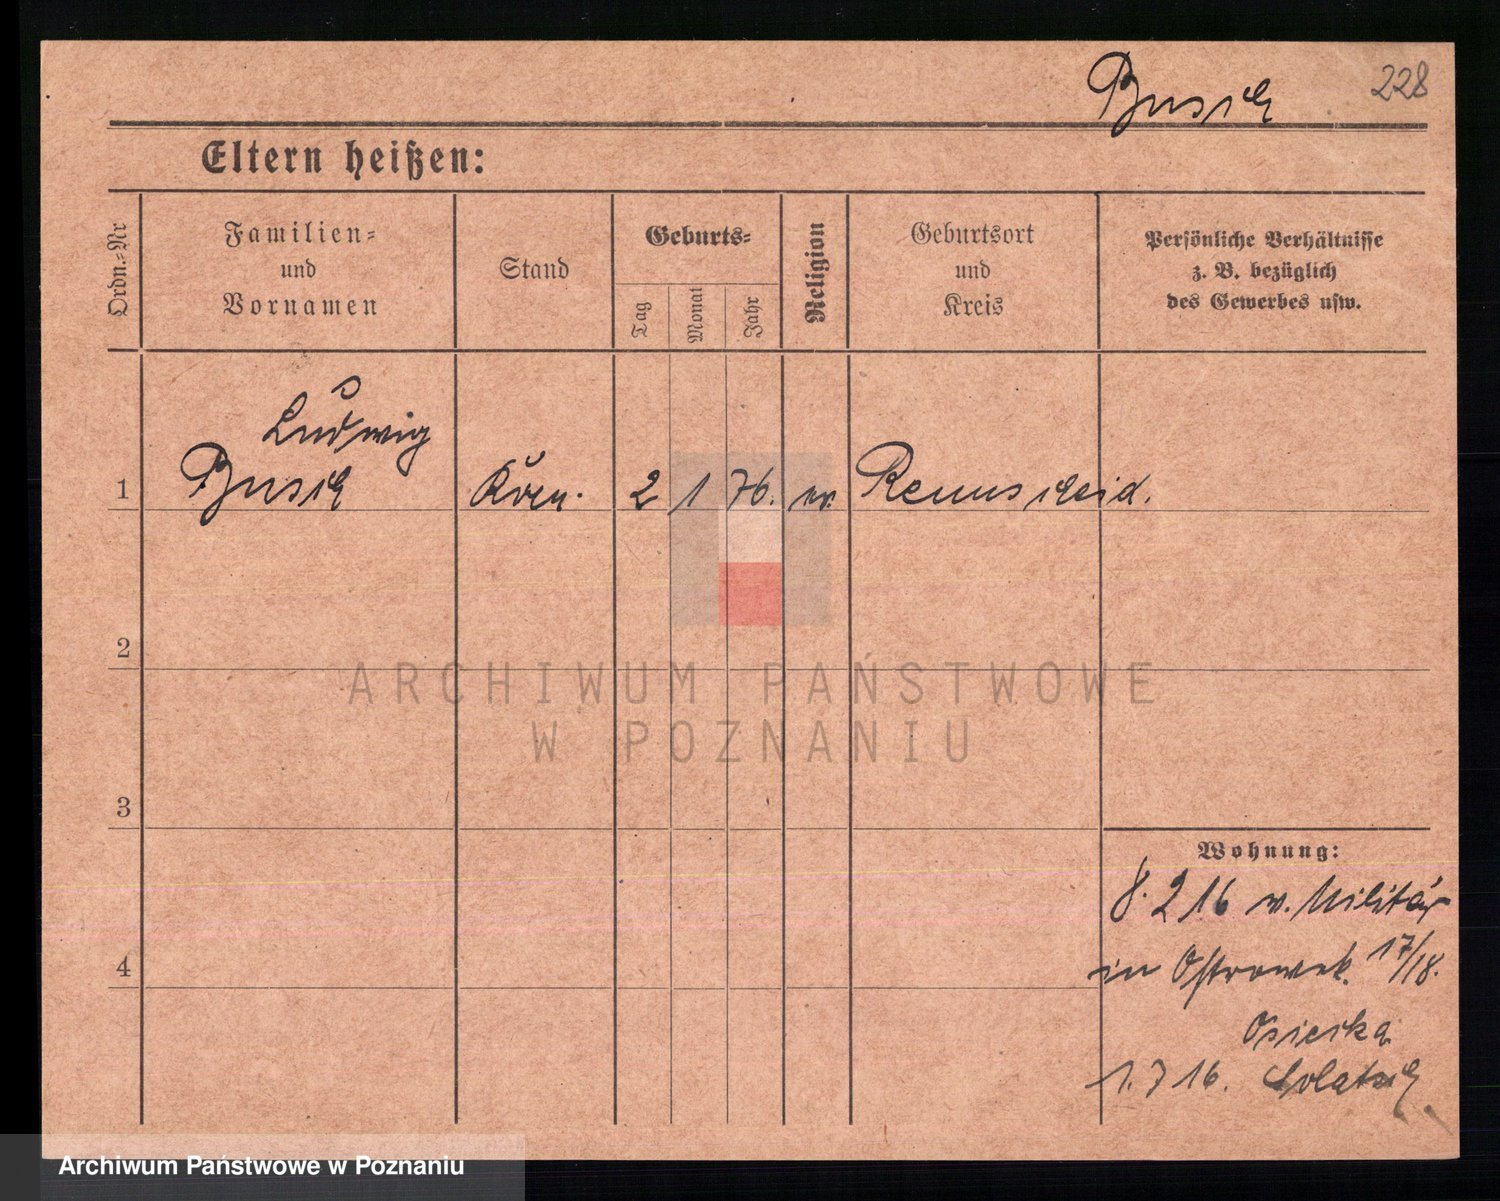 Busch 228
Eltern heißen:
Ordn.-Nr
Familien-
und
Vornamen
Stand
Geburts-
Tag
Monat
Jahr
Religion
Geburtsort
und
Kreis
Persönliche Verhältnisse
z. B. bezüglich
des Gewerbes usw.
Ludwig
1 Busch 2 1 76. ev. Remscheid.
2
3
4
Wohnung:
8. 2 16 v. Militär
in Ostrowek. 17/18.
Osiecka
1. 7 16. Solatsch
ARCHIWUM PAŃSTWOWE
W POZNANIU
Archiwum Państwowe w Poznaniu